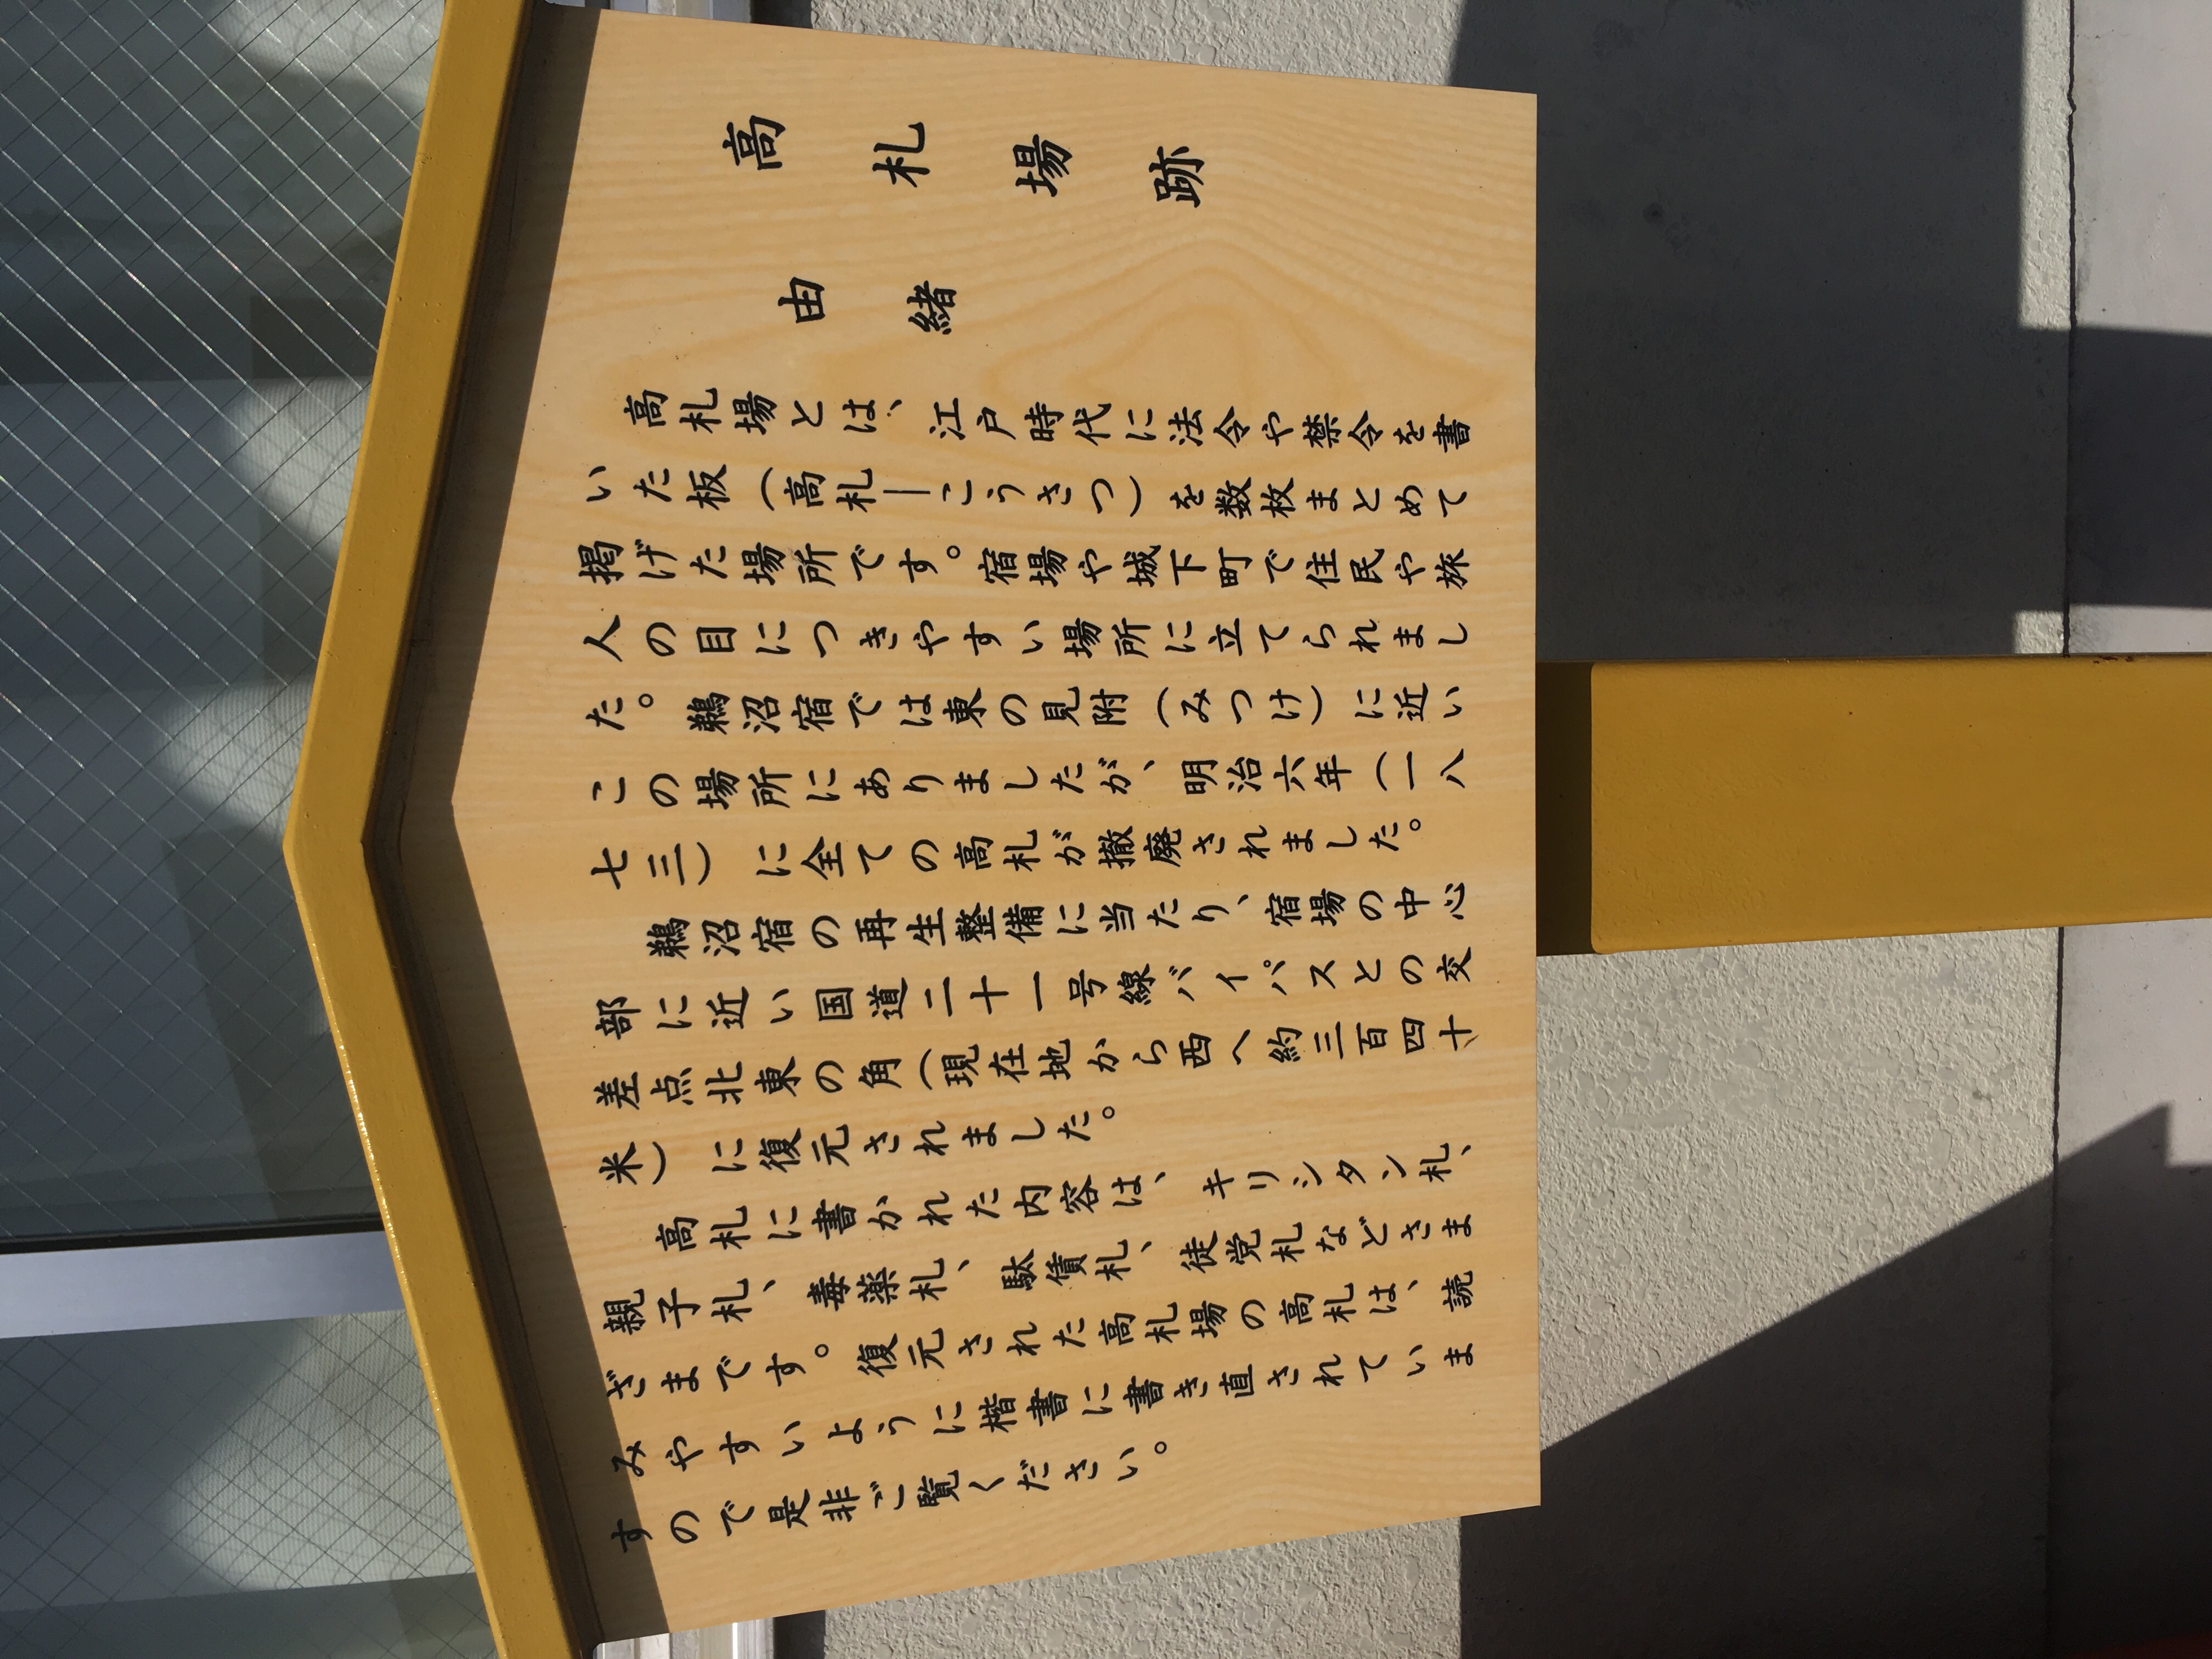 高札場跡
由緒
高札場とは、江戸時代に法令や禁令を書
いた板(高札―こうさつ)を数枚まとめて
掲げた場所です。宿場や城下町で住民や旅
人の目につきやすい場所に立てられまし
た。鵜沼宿では東の見附(みつけ)に近い
この場所にありましたが、明治六年(一八
七三)に全ての高札が撤廃されました。
鵜沼宿の再生整備に当たり、宿場の中心
部に近い国道二十一号線バイパスとの交
差点北東の角(現在地から西へ約三百四十
米)に復元されました。
高札に書かれた内容は、キリシタン札、
親子札、毒薬札、駄賃札、徒党札などさま
ざまです。復元された高札場の高札は、読
みやすいように楷書に書き直されていま
すので是非ご覧ください。